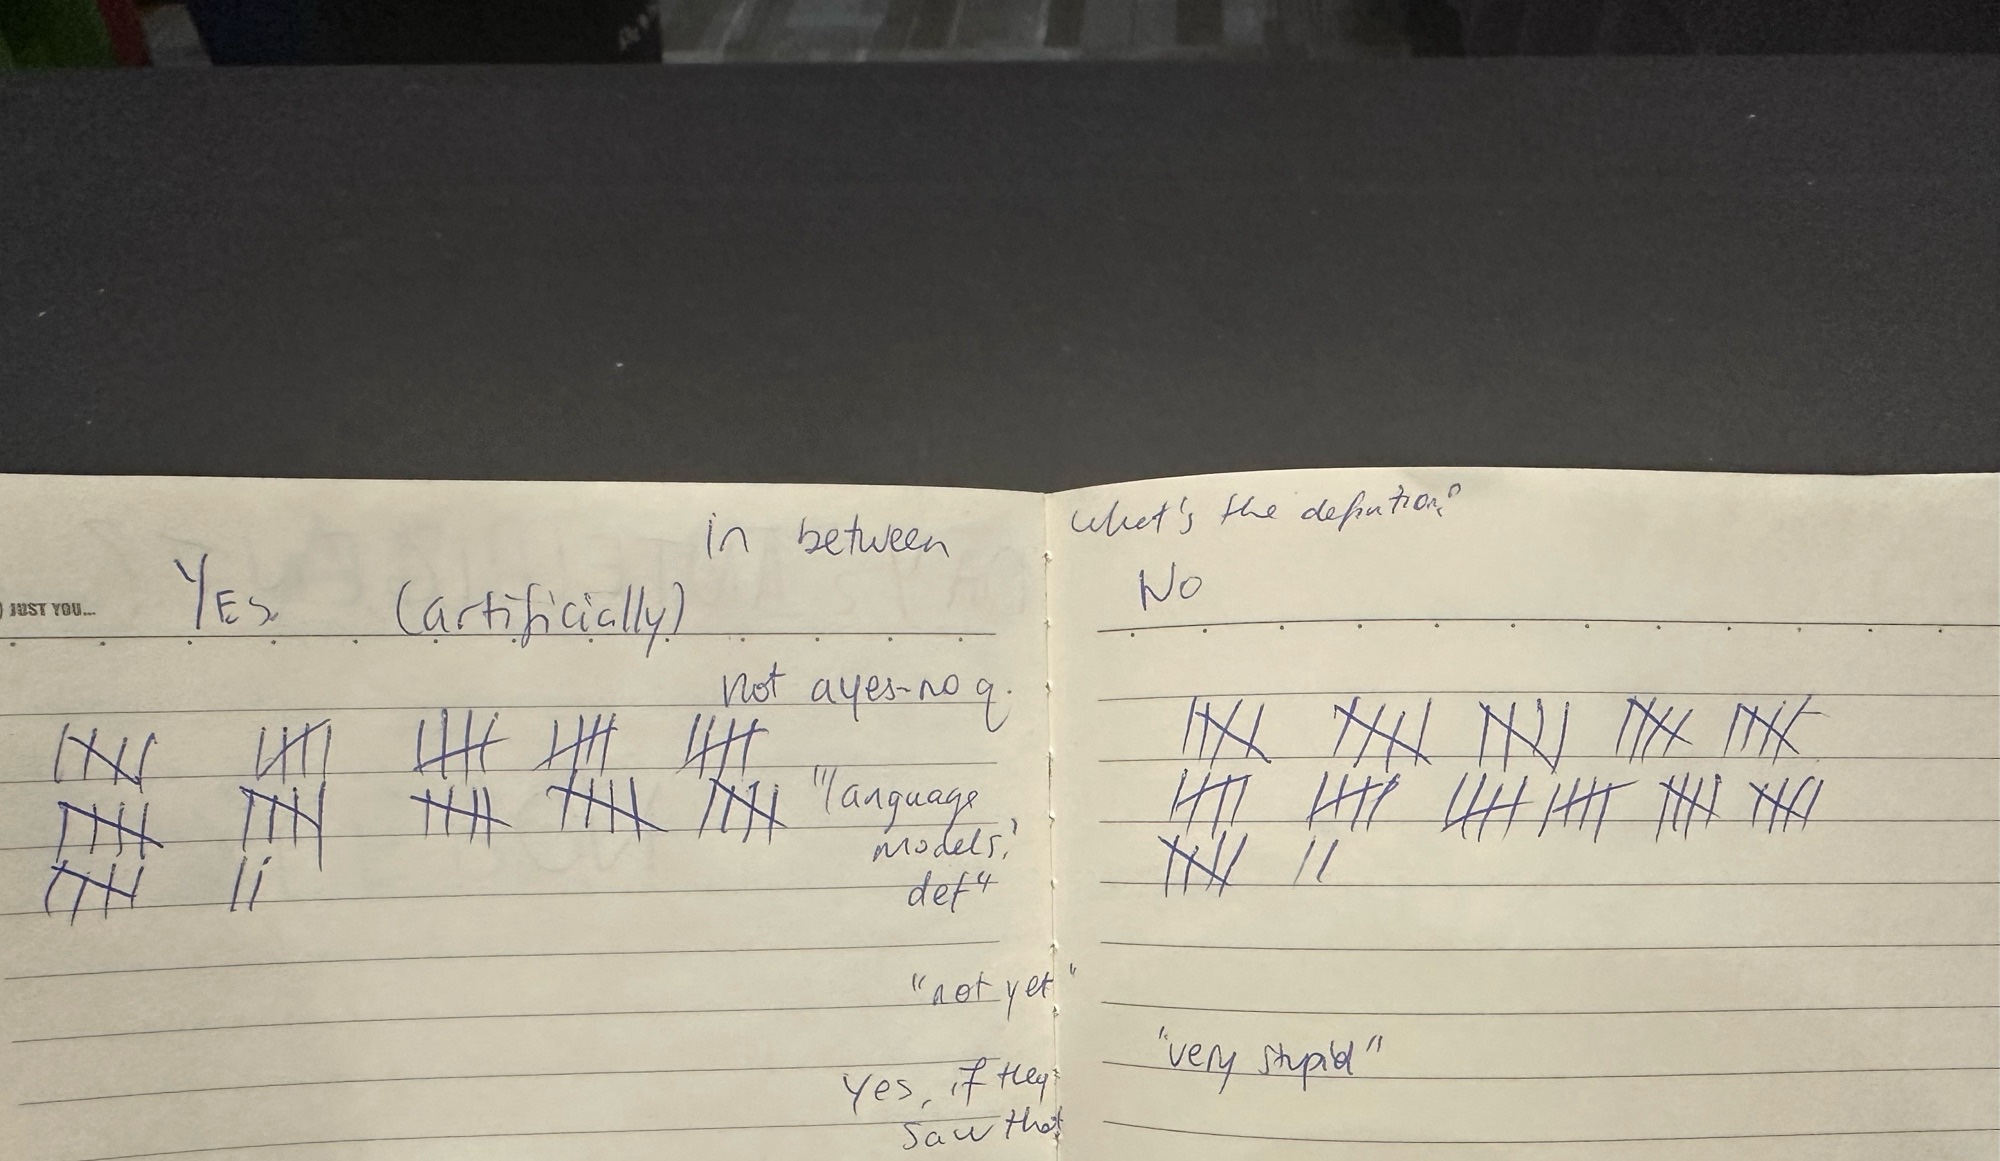 in between
What's the defnition?
) JUST YOU...
YES
(artificially)
NO
not a yes-no q.
"language
models,
def"
"not yet"
"very stupid"
yes, if they
saw that